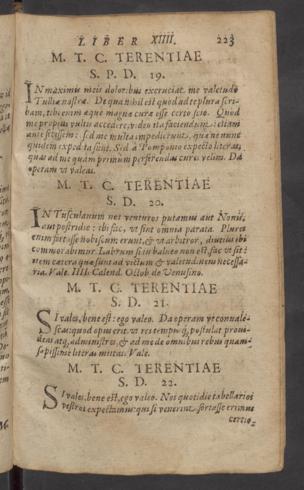 LIBER XIIII. 223
M. T. C. TERENTIAE
S. P. D. 19.
IN maximis meis doloribus excruciat me valetudo
Tulliæ nostræ. De qua nihil est quod ad te plura scri-
bam, tibi enim æque magnæ curæ esse certo scio. Quod
me propius vultis accedere, video ita faciendum: etiam
ante fecissem: sed me multa impedierunt, quæ ne nunc
quidem expedita sunt. Sed à Pomponio expecto literas,
quas ad me quam primum perferendas cures velim. Da
operam vt valeas.
M. T. C. TERENTIAE
S. D. 20.
IN Tusculanum nos venturos putamus aut Nonis,
aut postridie: ibi fac, vt sint omnia parata. Plures
enim fortasse nobiscum erunt, & vt arbitror, diutius ibi
commorabimur. Labrum si in balneo non est, fac vt sit:
item cætera quæ sunt ad victum & valetudinem necessa-
ria. Vale. IIII. Calend. Octob. de Venusino.
M. T. C. TERENTIAE
S. D. 21.
SI vales, bene est: ego valeo. Da operam vt convale-
scas: quod opus erit, vt res tempusq; postulat provi-
deas atq; administres, & ad me de omnibus rebus quam
sæpissime literas mittas. Vale.
M. T. C. TERENTIAE
S. D. 22.
SI vales, bene est, ego valeo. Nos quotidie tabellarios
vestros expectamus: qui si venerint, fortasse erimus
certio-